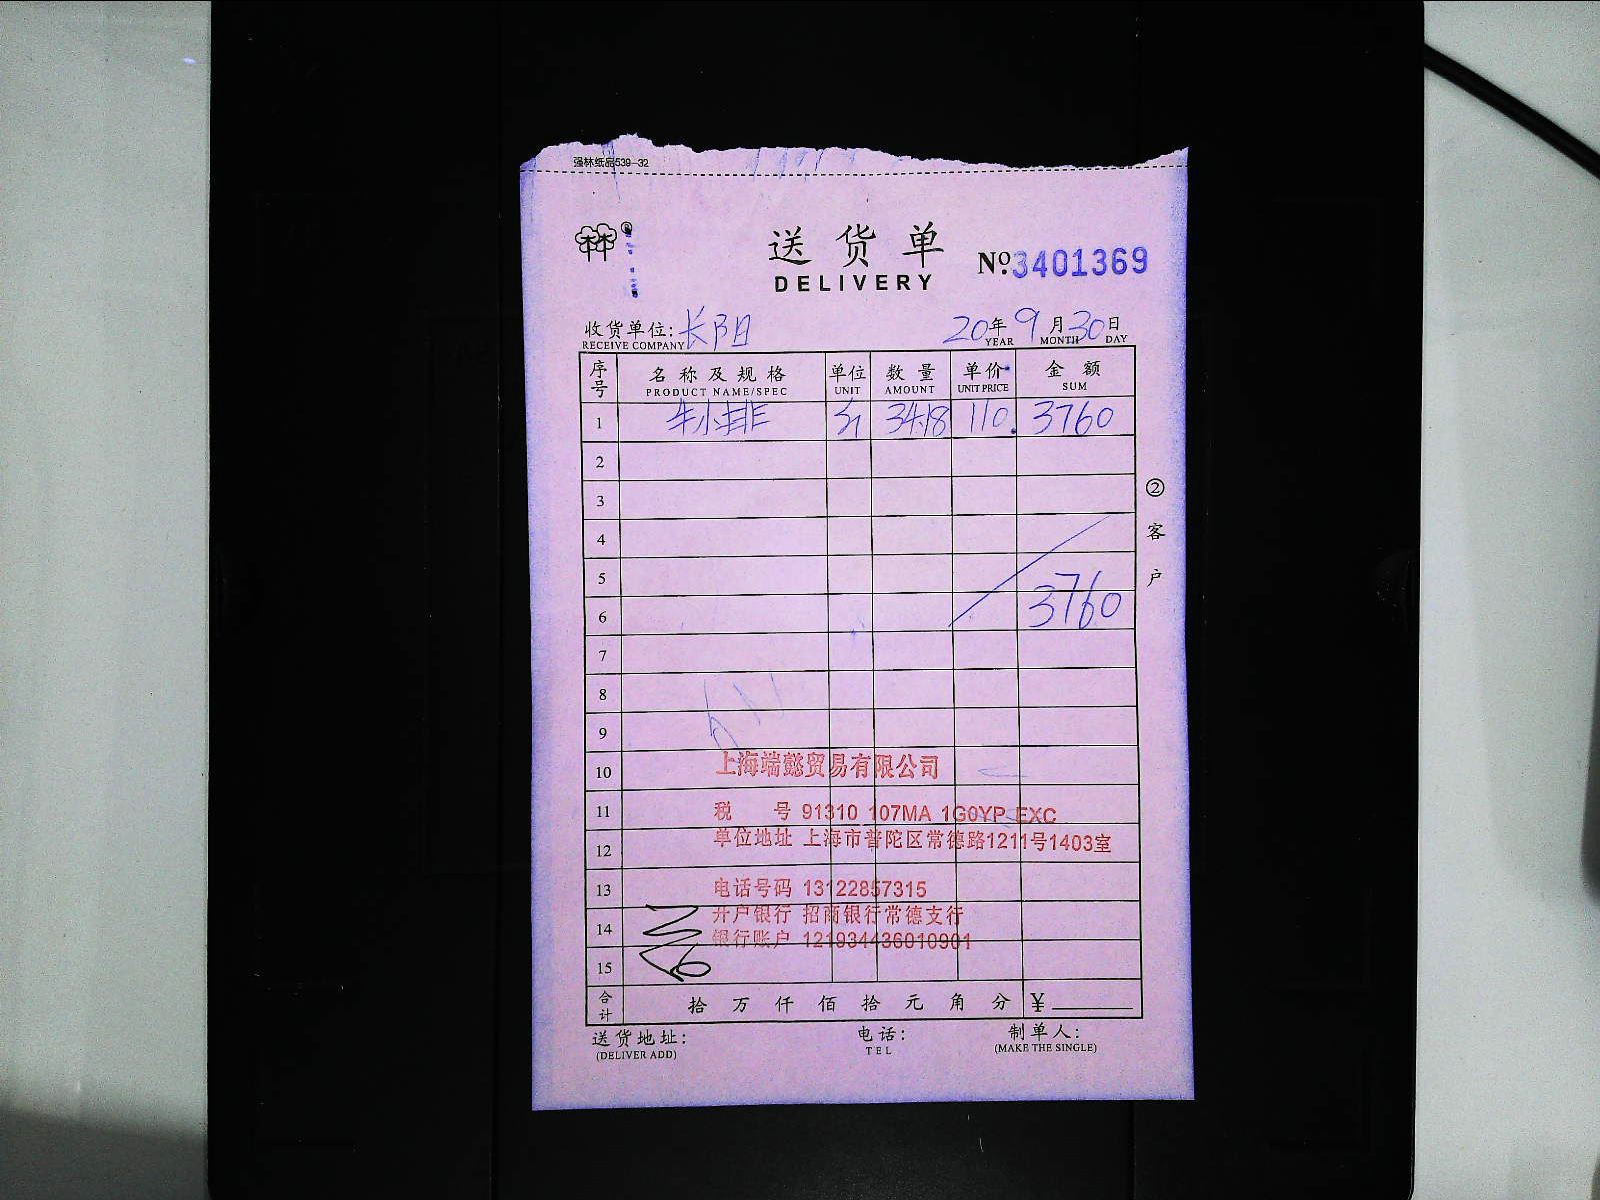 强林纸品539-32
送货单
DELIVERY
№:3401369
收货单位: 长阳 20年9月30日
RECEIVE COMPANY YEAR MONTH DAY
序号 名称及规格 单位 数量 单价 金额
PRODUCT NAME/SPEC UNIT AMOUNT UNIT PRICE SUM
1 牛小排 斤 34.18 110. 3760
2
3
4
5
6 3760
7
8
9
10
11
12
13
14
15
② 客户
上海端懿贸易有限公司
税 号 91310 107MA 1G0YP EXC
单位地址 上海市普陀区常德路1211号1403室
电话号码 13122857315
开户银行 招商银行常德支行
银行账户 121934436010901
合计 拾 万 仟 佰 拾 元 角 分 ¥
送货地址: 电话: 制单人:
(DELIVER ADD) TEL (MAKE THE SINGLE)